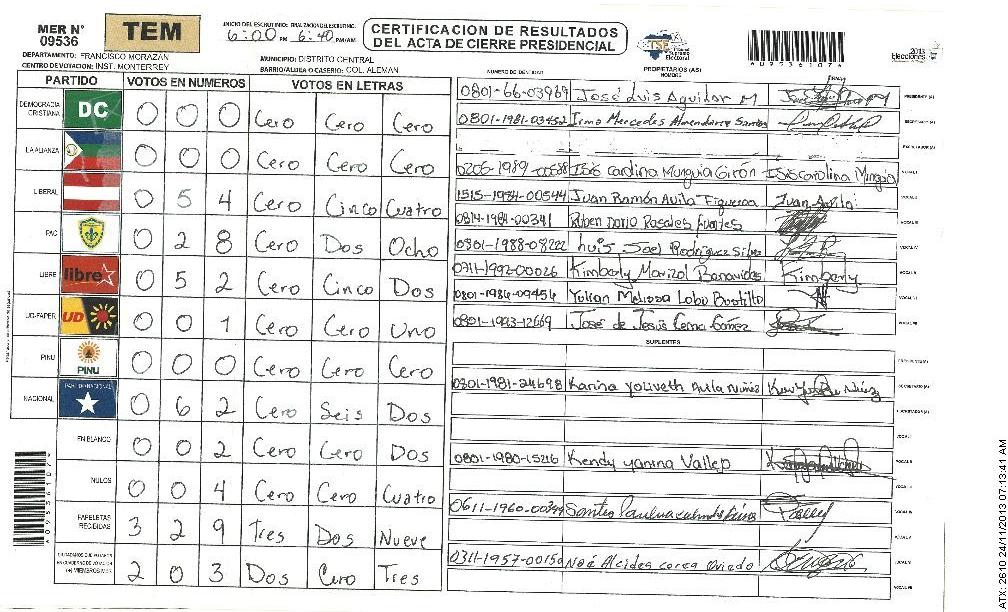 MER N° 09536
TEM
INICIO DEL ESCRUTINIO: FINALIZACION DEL ESCRUTINIO:
6:00 PM 6:40 PM/AM
CERTIFICACION DE RESULTADOS
DEL ACTA DE CIERRE PRESIDENCIAL
TSE Tribunal Supremo Electoral
2013 Elecciones
DEPARTAMENTO: FRANCISCO MORAZAN
MUNICIPIO: DISTRITO CENTRAL
CENTRO DE VOTACION: INST. MONTERREY
BARRIO/ALDEA O CASERIO: COL. ALEMAN
PARTIDO VOTOS EN NUMEROS VOTOS EN LETRAS
DEMOCRACIA CRISTIANA DC 0 0 0 Cero Cero Cero
LA ALIANZA 0 0 0 Cero Cero Cero
LIBERAL 0 5 4 Cero Cinco Cuatro
PAC 0 2 8 Cero Dos Ocho
LIBRE libre 0 5 2 Cero Cinco Dos
UD-FAPER UD 0 0 1 Cero Cero Uno
PINU PINU 0 0 0 Cero Cero Cero
NACIONAL PARTIDO NACIONAL 0 6 2 Cero Seis Dos
EN BLANCO 0 0 2 Cero Cero Dos
NULOS 0 0 4 Cero Cero Cuatro
PAPELETAS RECIBIDAS 3 2 9 Tres Dos Nueve
2 0 3 Dos Cero Tres
NUMERO DE IDENTIDAD PROPIETARIOS (AS) NOMBRE FIRMA
0801-66-03969 José Luis Aguilar M PRESIDENTE (A)
0801-1981-03452 Irma Mercedes Almendarez Santos SECRETARIO (A)
ESCRUTADOR (A)
0205-1989-00588 Isis carolina Munguia Girón Isis carolina Munguia VOCAL I
1515-1984-00544 Juan Ramón Avila Figueroa Juan Avila VOCAL II
0814-1981-00341 Ruben Dario Rosales fuertes VOCAL III
0801-1988-08222 Luis Joel Rodriguez Silva VOCAL IV
0711-1992-00026 Kimberly Marizol Banavides Kimberly VOCAL V
0801-1986-09456 Yulian Melissa Lobo Bustillo VOCAL VI
0801-1993-12669 José de Jesús Cerna Gómez VOCAL VII
SUPLENTES
PRESIDENTE (A)
0801-1981-24698 Karina Yoliveth Avila Nuñez SECRETARIO (A)
ESCRUTADOR (A)
VOCAL I
0801-1980-15216 Kendy yanina Vallejo VOCAL II
VOCAL III
VOCAL IV
VOCAL V
0311-1957-00150 Noé Alcides corea Oviedo VOCAL VI
VOCAL VII
A09536107A
ATX: 2610 24/11/2013 07:13:41 AM